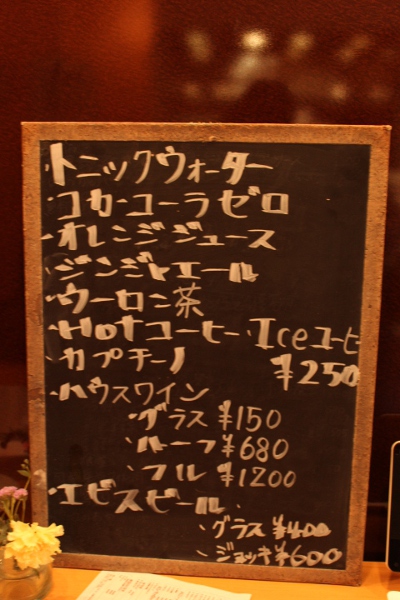 ・トニックウォーター
・コカ・コーラゼロ
・オレンジジュース
・ジンジャエール
・ウーロン茶
・Hotコーヒー・Iceコーヒー
・カプチーノ ¥250
・ハウスワイン
・グラス ¥150
・ハーフ ¥680
・フル ¥1200
・エビスビール
・グラス ¥400
・ジョッキ ¥600